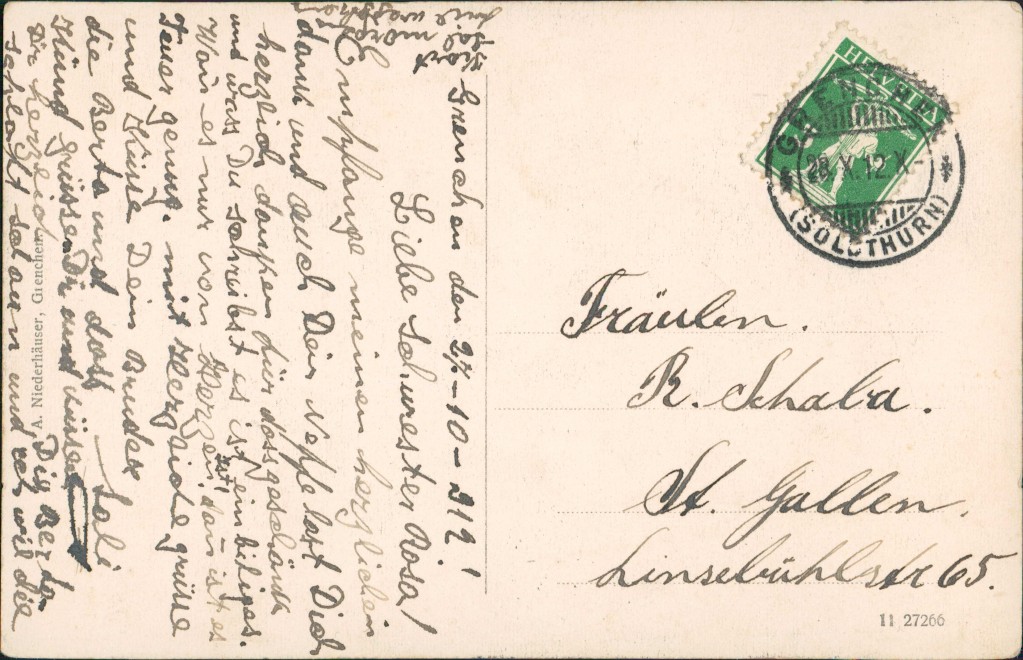 Grenchen den 27-10-912
Liebe Schwester Rosa!
Empfange meinen herzlichen
dank und auch Dein Neffe last Dich
herzlich danken für dass geschänk
und wass Du schreibst es ist ein biliges.
Wan es nur von Herzen dan ist es
Teuer genug. mit Herzliche grüsse
und Küsse Dein Bruder Sali
die Berta und dass
Kind grüssen Dir und küssen
Dir herzlich Dig Berta
schlaft schon und ich wil die
Kart
morgen
HELVETIA
GRENCHEN
28.X.12.X-
(SOLOTHURN)
Fräulen.
R. Schalra.
St. Gallen.
Linsebühlstr 65.
A. Niederhäuser, Grenchen
11 27266